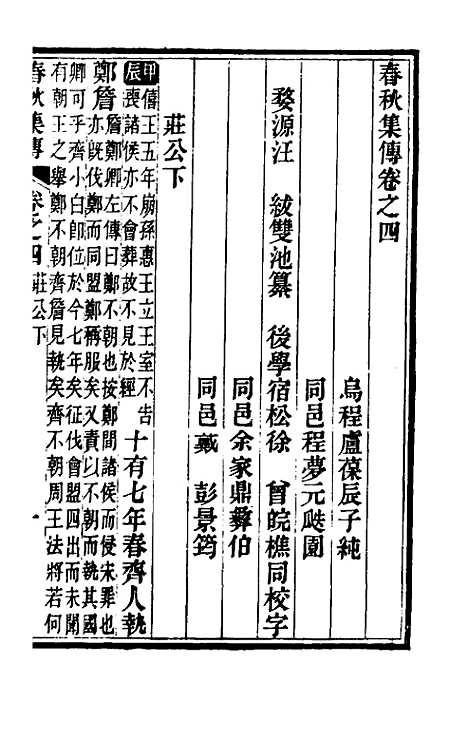 春秋集傳卷之四
烏程盧葆辰子純
同邑程夢元颷園
婺源汪　紱雙池纂　後學宿松徐　曾皖樵同校字
同邑余家鼎彝伯
同邑戴　彭景筠
莊公下
甲辰
僖王五年崩孫惠王立王室不告
喪諸侯亦不會葬故不見於經
十有七年春齊人執
鄭詹
詹鄭卿左傳曰鄭不朝也按鄭間諸侯而侵宋罪也
亦旣伐鄭而同盟鄭稱服矣又責以不朝而執其國
卿可乎齊小白卽位於今七年矣征伐會盟四出而未聞
有朝王之舉鄭不朝齊詹見執矣齊不朝周王法將若何
春秋集傳
卷之四莊公下
一